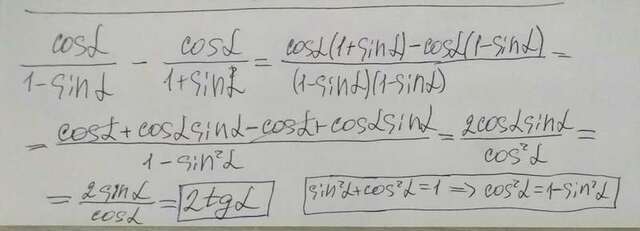 cosα/(1-sinα) - cosα/(1+sinα) = (cosα(1+sinα)-cosα(1-sinα))/((1-sinα)(1-sinα)) =
= (cosα+cosαsinα-cosα+cosαsinα)/(1-sin²α) = 2cosαsinα/cos²α =
= 2sinα/cosα = 2tgα sin²α+cos²α=1 => cos²α=1-sin²α